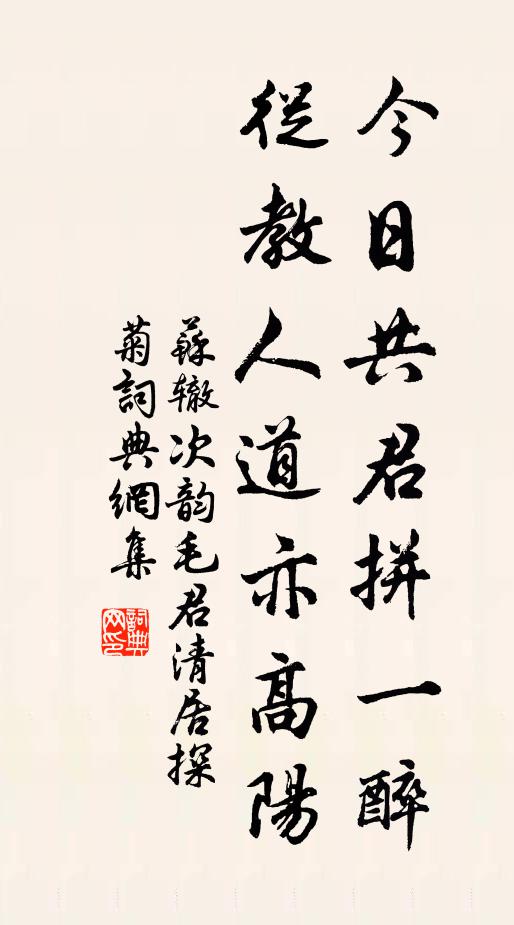 今日共君拼一醉
從教人道亦高陽
蘇辙次韵毛君清居探
菊詞典網集
詞典网印